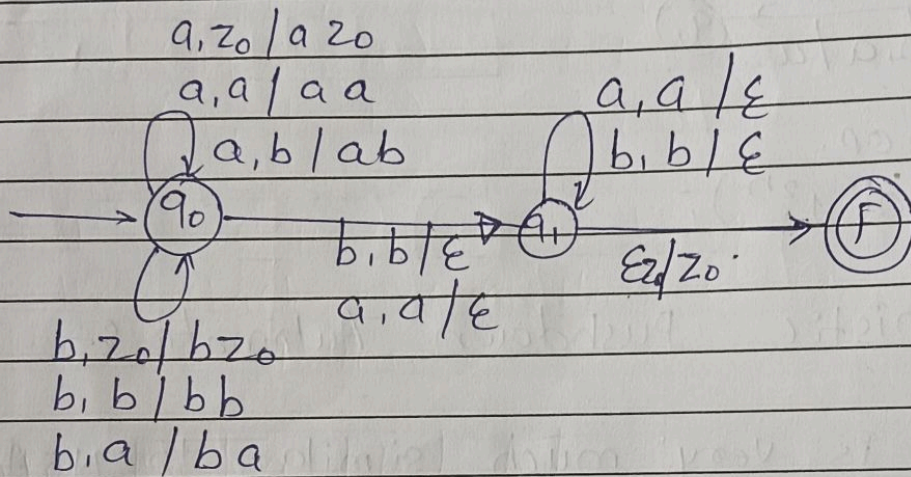 a, z0 / a z0
a, a / a a
a, b / ab
a, a / ε
b, b / ε
q0
q1
F
b, b / ε
a, a / ε
εz0/z0.
b, z0 / b z0
b, b / b b
b, a / b a